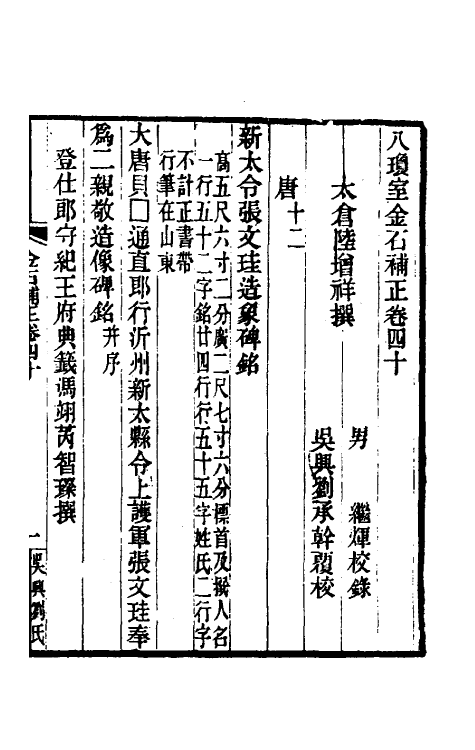 八瓊室金石補正卷四十
太倉陸增祥撰
男　繼煇校錄
吳興劉承幹覆校
唐十二
新太令張文珪造象碑銘
高五尺六寸二分廣二尺七寸六分標首及撰人名
一行五十二字銘廿四行行五十五字姓氏二行字
不計正書帶
行筆在山東
大唐貝□通直郎行沂州新太縣令上護軍張文珪奉
爲二親敬造像碑銘并序
登仕郎守紀王府典籤馮翊芮智璨撰
金石補正卷四十
一
吳興劉氏